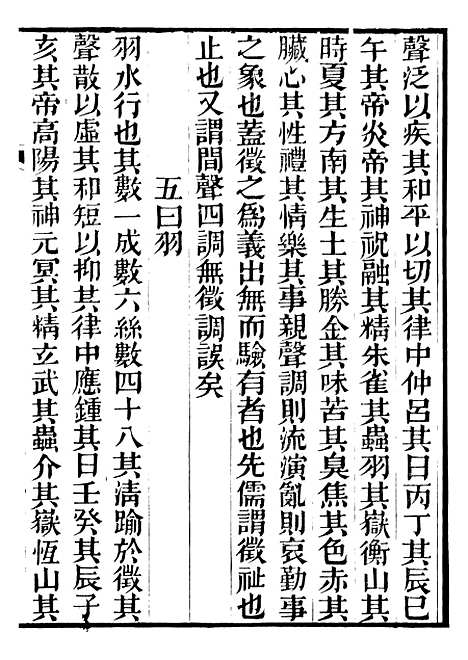 聲泛以疾其和平以切其律中仲呂其日丙丁其辰巳
午其帝炎帝其神祝融其精朱雀其蟲羽其嶽衡山其
時夏其方南其生土其勝金其味苦其臭焦其色赤其
臟心其性禮其情樂其事親聲調則流演亂則哀勤事
之象也蓋徵之爲義出無而驗有者也先儒謂徵祉也
止也又謂閒聲四調無徵調誤矣
五曰羽
羽水行也其數一成數六絲數四十八其淸踰於徵其
聲散以虛其和短以抑其律中應鍾其日壬癸其辰子
亥其帝高陽其神元冥其精玄武其蟲介其嶽恆山其